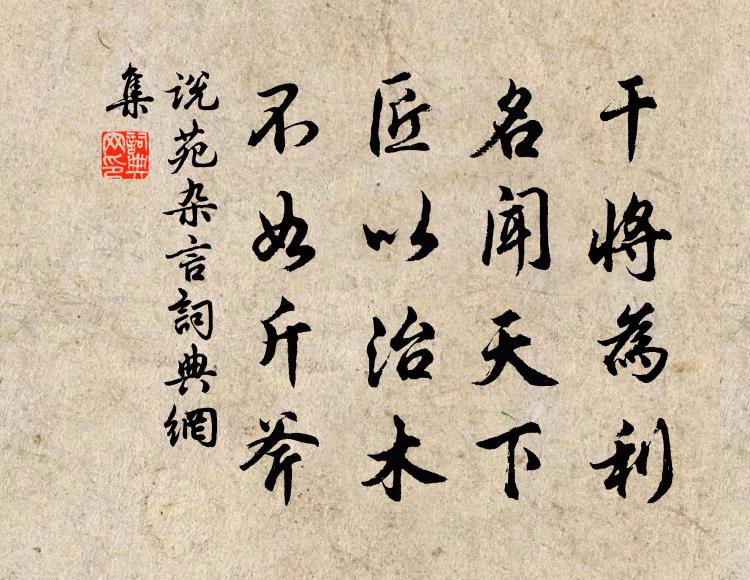 干將為利
名聞天下
匠以治木
不如斤斧
说苑杂言詞典網
集
詞典
网印